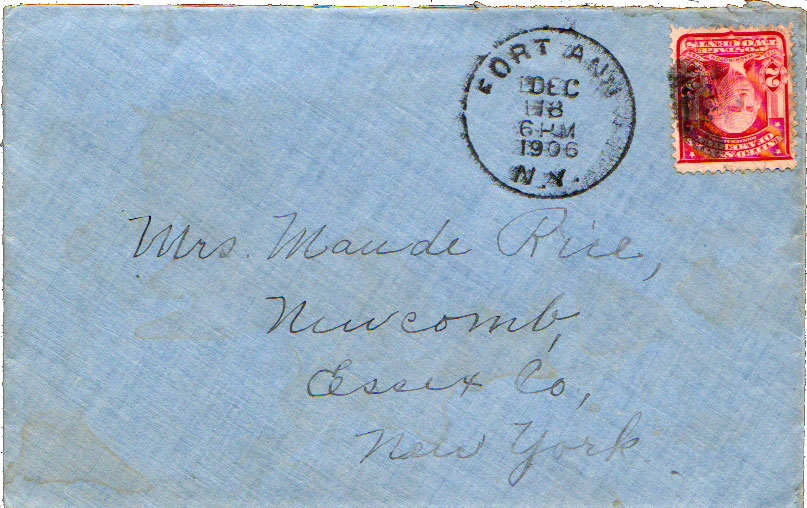 FORT ANN
DEC
18
6 PM
1906
N.Y.
2
Mrs. Maude Rice,
Newcomb,
Essex Co,
New York